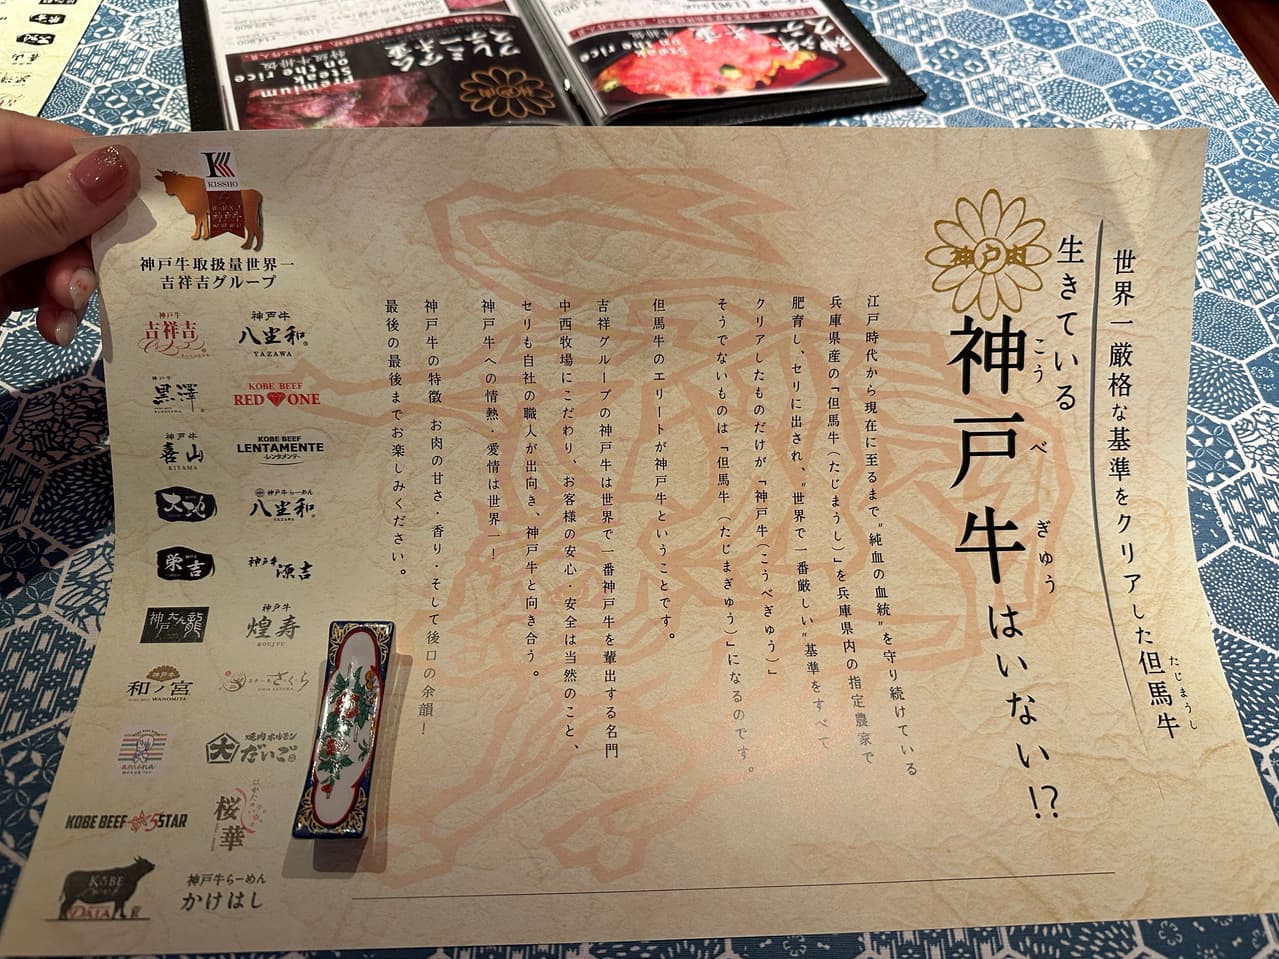 世界一厳格な基準をクリアした但馬牛
たじまうし
生きている
神戸牛はいない!?
こうべぎゅう
神戸肉
江戸時代から現在に至るまで"純血の血統"を守り続けている
兵庫県産の「但馬牛(たじまうし)」を兵庫県内の指定農家で
肥育し、セリに出され、"世界で一番厳しい"基準をすべて
クリアしたものだけが「神戸牛(こうべぎゅう)」
そうでないものは「但馬牛(たじまぎゅう)」になるのです。
但馬牛のエリートが神戸牛ということです。
吉祥グループの神戸牛は世界で一番神戸牛を輩出する名門
中西牧場にこだわり、お客様の安心・安全は当然のこと、
セリも自社の職人が出向き、神戸牛と向き合う。
神戸牛への情熱・愛情は世界一!
神戸牛の特徴 お肉の甘さ・香り・そして後口の余韻!
最後の最後までお楽しみください。
KISSHO
神戸牛
神戸牛取扱量世界一
吉祥吉グループ
神戸牛
吉祥吉
神戸牛
八坐和
YAZAWA
神戸牛
黒澤
KOBE BEEF
RED ONE
神戸牛
喜山
KIYAMA
KOBE BEEF
LENTAMENTE
-レンタメンテ-
大功
神戸牛らーめん
八坐和
YAZAWA
栄吉
神戸牛
源吉
神戸たん龍
神戸牛
煌寿
KOUJYU
神戸牛
和ノ宮
WANOMIYA
ステーキさくら
amona
大
焼肉ホルモン
だいご
KOBE BEEF 5STAR
はかた
桜華
KOBE
DATA
神戸牛らーめん
かけはし
プレミアム
ステーキ重
Premium
Steak
on the rice
神戸牛
ステーキ重
Steak
on the rice